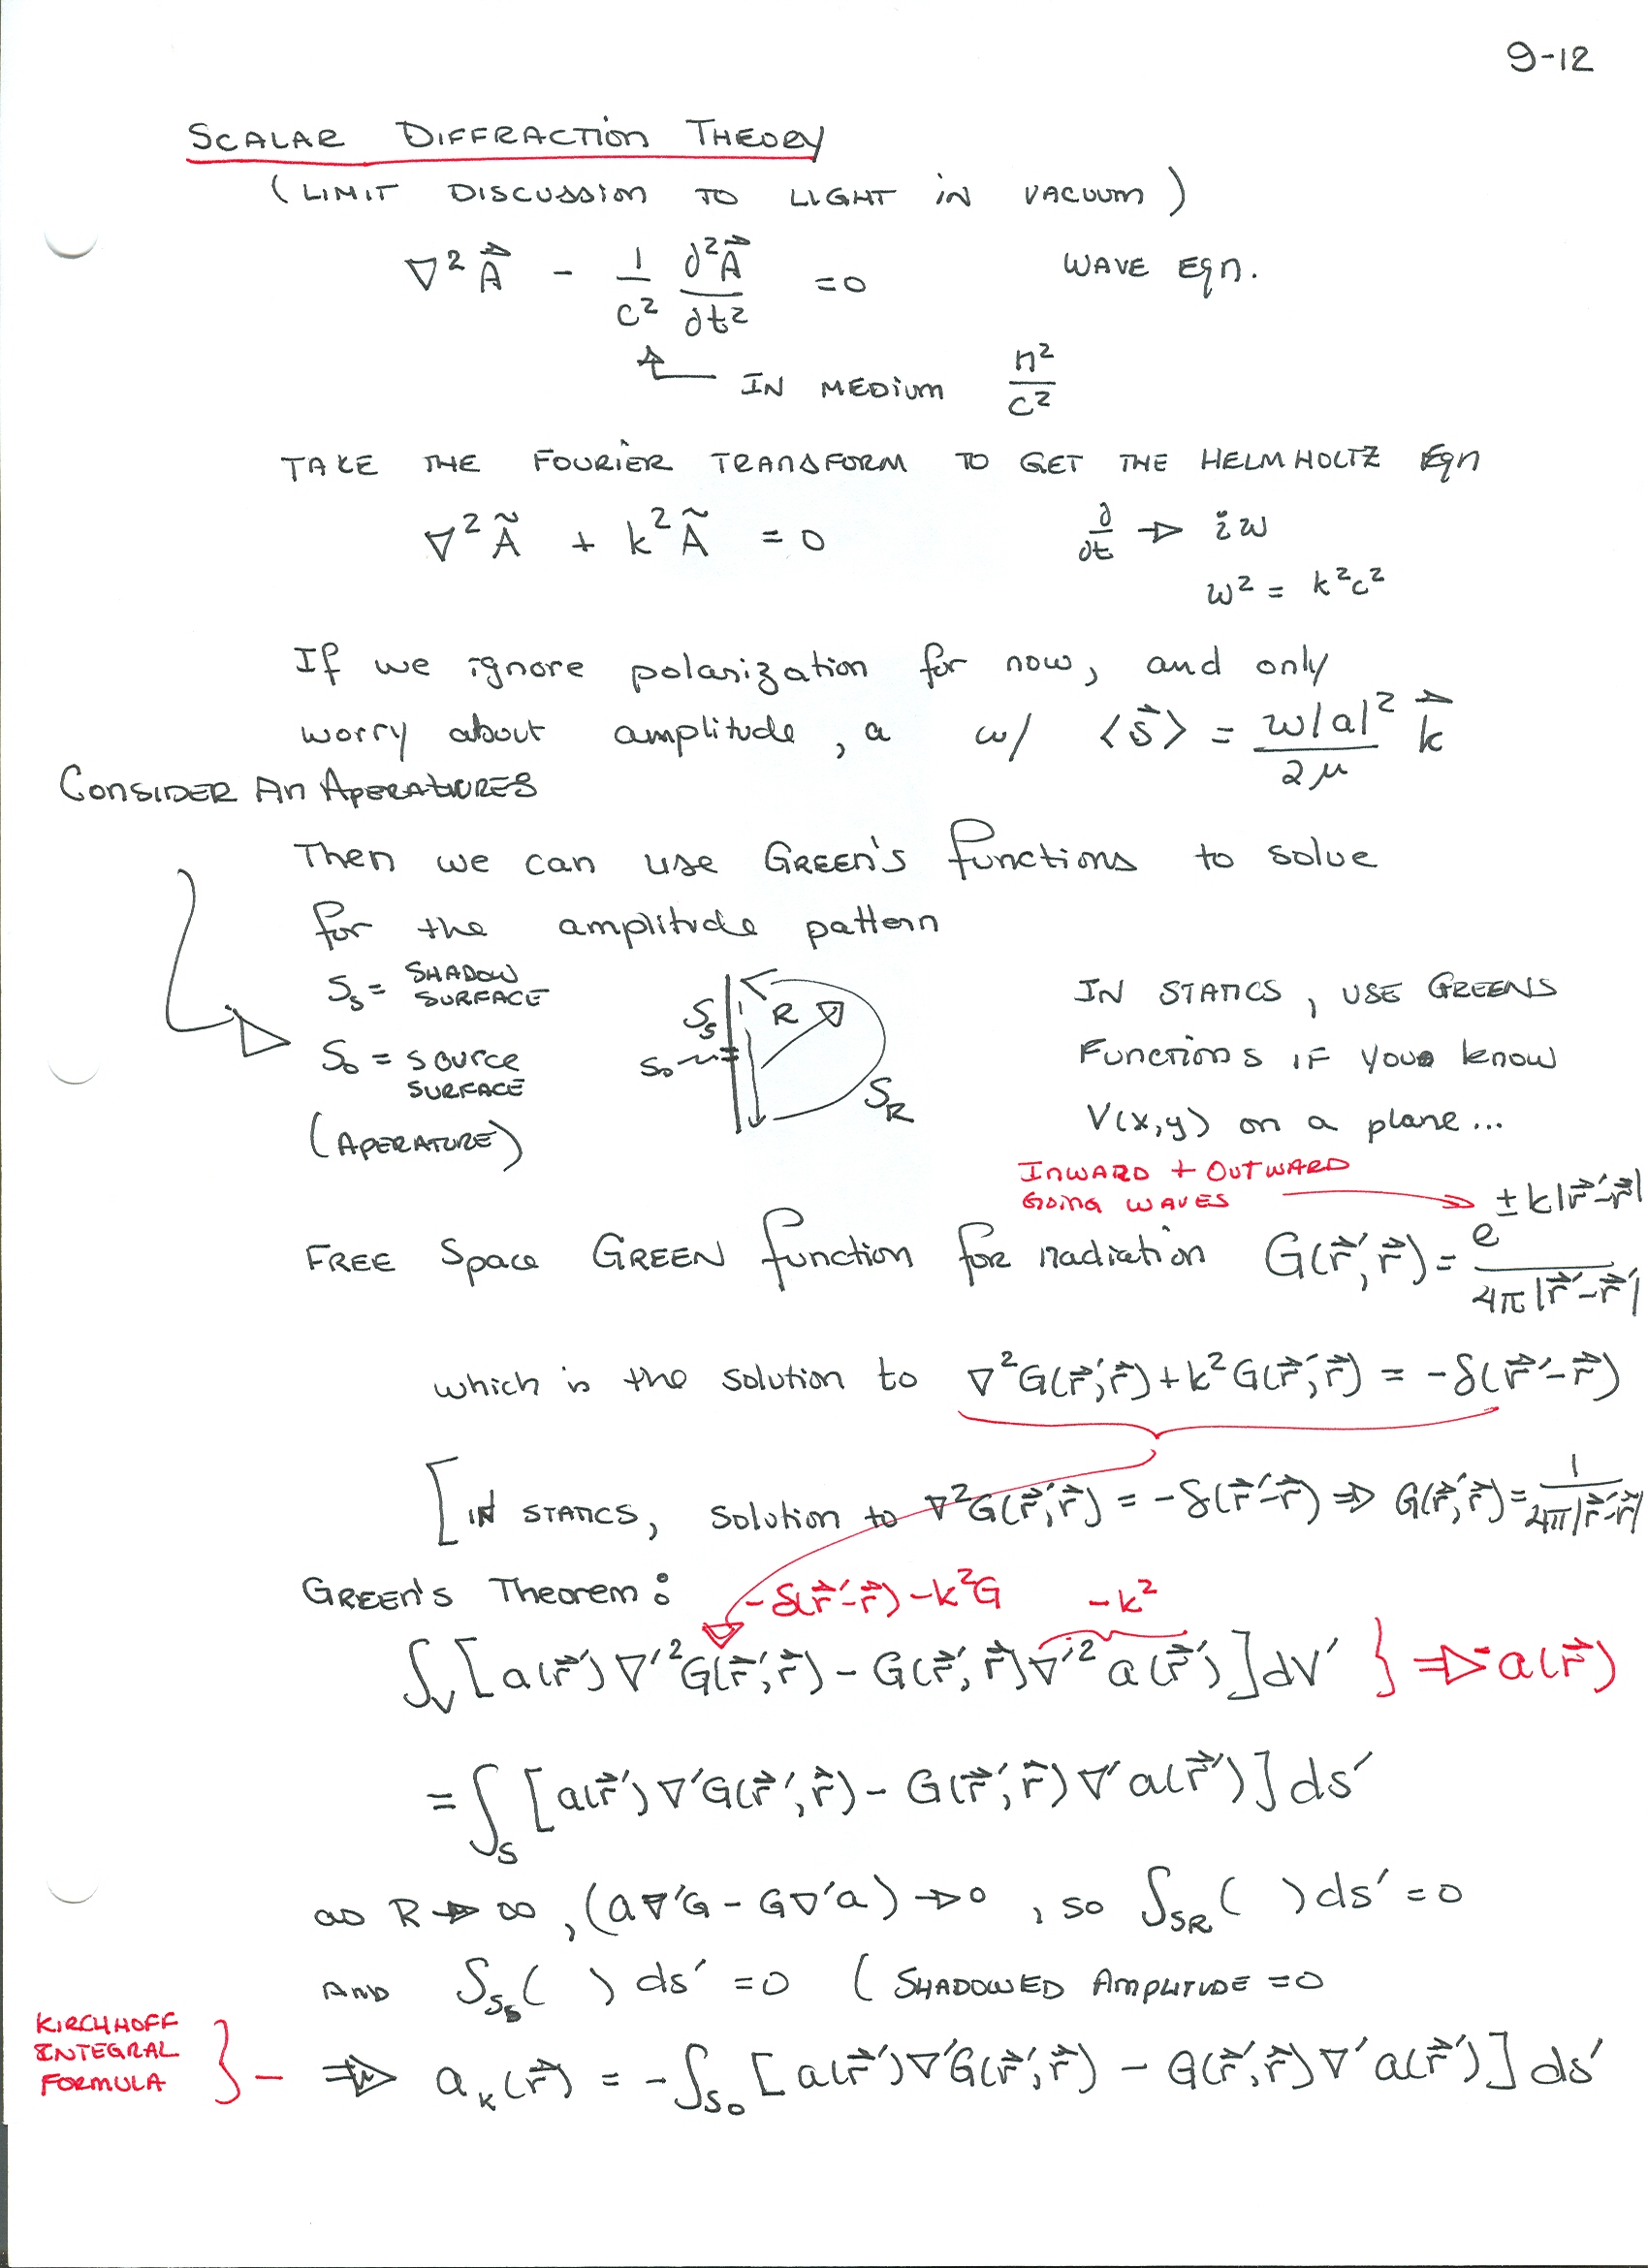 9-12
SCALAR DIFFRACTION THEORY
(LIMIT DISCUSSION TO LIGHT IN VACUUM)
∇² A⃗ - 1/c² ∂²A⃗/∂t² = 0 WAVE Eqn.
IN MEDIUM n²/c²
TAKE THE FOURIER TRANSFORM TO GET THE HELMHOLTZ Eqn
∇²Ã + k²Ã = 0 ∂/∂t → iω
ω² = k²c²
If we ignore polarization for now, and only
worry about amplitude, a w/ ⟨S⃗⟩ = ω|a|²/2μ k⃗
CONSIDER An APERATURES
Then we can use GREEN's functions to solve
for the amplitude pattern
S_s = SHADOW SURFACE
S_o = source SURFACE
(APERATURE)
S_s
S_o
R
S_R
IN STATICS, USE GREENS
Functions IF you know
V(x,y) on a plane...
INWARD + OUTWARD
Going WAVES →
FREE Space GREEN function for radiation G(r⃗′,r⃗) = e^{±k|r⃗′-r⃗|}/4π|r⃗′-r⃗|
which is the solution to ∇²G(r⃗′,r⃗) + k²G(r⃗′,r⃗) = -δ(r⃗′-r⃗)
[IN STATICS, solution to ∇²G(r⃗′,r⃗) = -δ(r⃗′-r⃗) ⇒ G(r⃗′,r⃗) = 1/4π|r⃗′-r⃗|
GREEN's Theorem: -δ(r⃗′-r⃗) - k²G -k²
∫_V [a(r⃗′)∇′²G(r⃗′,r⃗) - G(r⃗′,r⃗)∇′²a(r⃗′)]dV′ } ⇒ -a(r⃗)
= ∫_S [a(r⃗′)∇′G(r⃗′,r⃗) - G(r⃗′,r⃗)∇′a(r⃗′)]ds′
as R → ∞, (a∇′G - G∇′a) → 0, so ∫_SR ( )ds′ = 0
AND ∫_Ss ( )ds′ = 0 (SHADOWED AMPLITUDE = 0
KIRCHHOFF
INTEGRAL
FORMULA } - ⇒ a_k(r⃗) = -∫_So [a(r⃗′)∇′G(r⃗′,r⃗) - G(r⃗′,r⃗)∇′a(r⃗′)]ds′